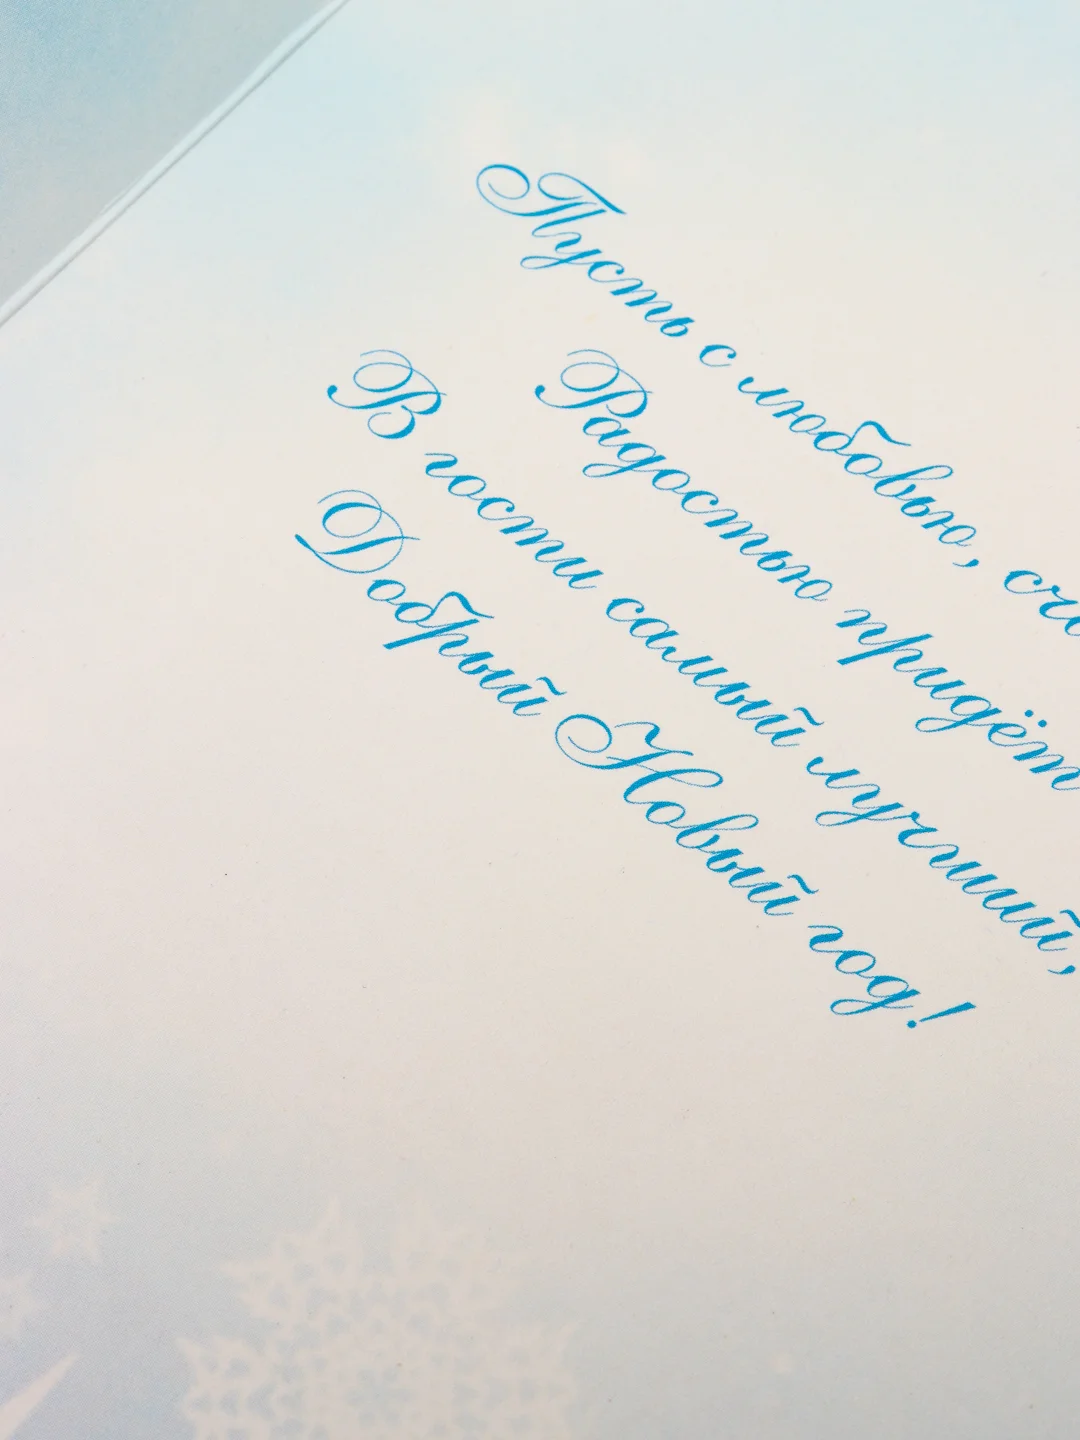 Пусть с любовью,
Радостью придёт
В гости самый лучший,
Добрый Новый год!